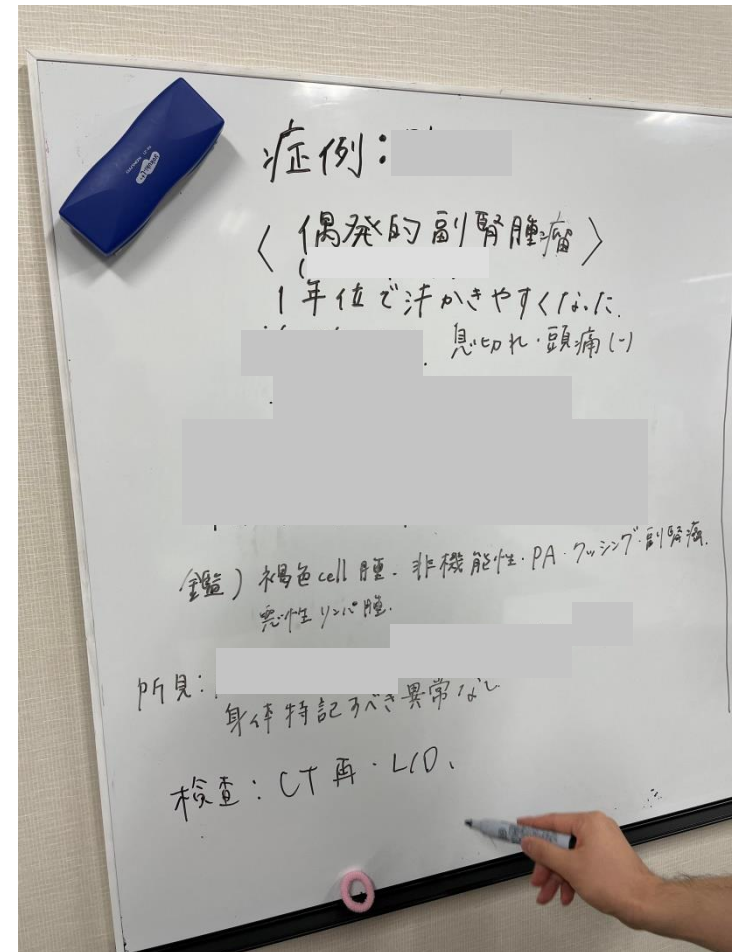 症例:
〈偶発的副腎腫瘤〉
1年位で汗かきやすくなった.
息切れ・頭痛(-)
鑑) 褐色cell腫. 非機能性・PA・クッシング・副腎癌.
悪性リンパ腫.
所見:
身体特記すべき異常なし
検査: CT再・